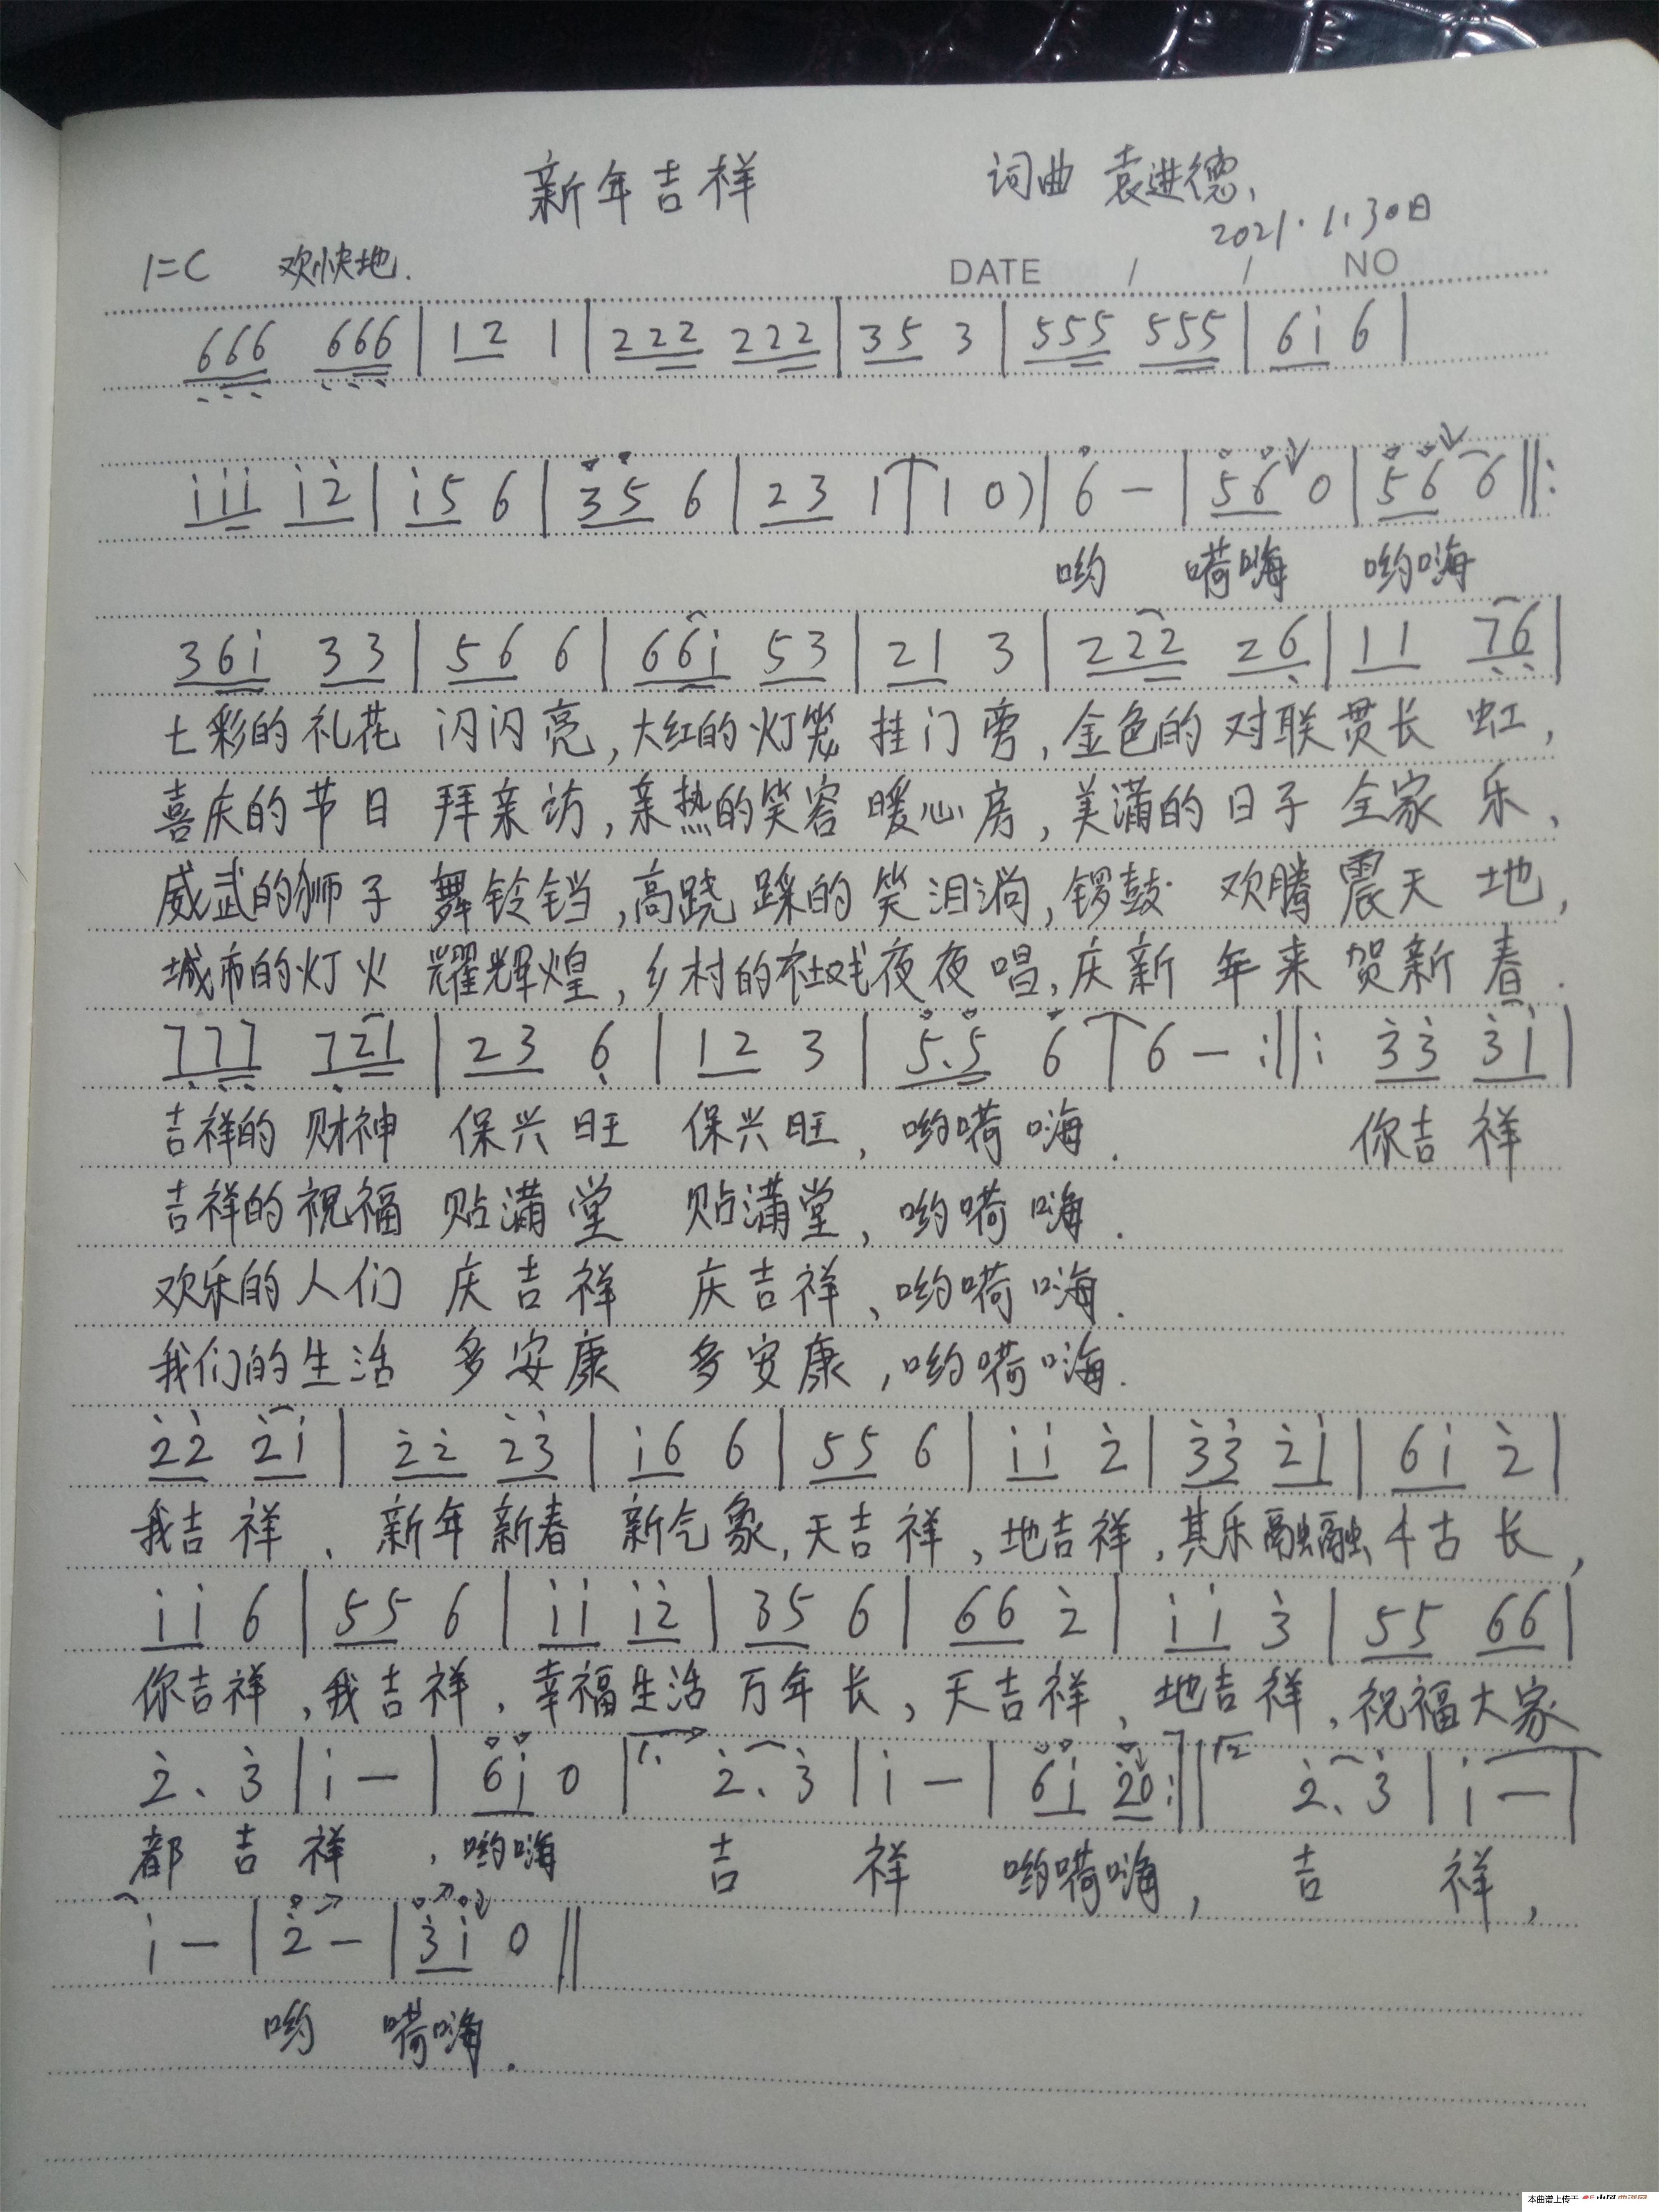 新年吉祥 词曲 袁进德、
2021.1.30日
1=C 欢快地. DATE / / NO
666 666 | 12 1 | 222 222 | 35 3 | 555 555 | 6i 6 |
iii i2 | i5 6 | 35 6 | 23 1 | 1 0) | 6 — | 56 0 | 56 6 ‖:
哟 嗬嗨 哟嗨
36i 33 | 56 6 | 66i 53 | 21 3 | 222 26 | 11 76 |
七彩的礼花 闪闪亮,大红的灯笼 挂门旁,金色的对联贯长虹,
喜庆的节日 拜亲访,亲热的笑容暖心房,美满的日子全家乐,
威武的狮子 舞铃铛,高跷踩的笑泪淌,锣鼓欢腾震天地,
城市的灯火 耀辉煌,乡村的社戏夜夜唱,庆新年来贺新春.
777 721 | 23 6 | 12 3 | 5.5 6 | 6 — :‖: 33 3i |
吉祥的财神 保兴旺 保兴旺,哟嗬嗨. 你吉祥
吉祥的祝福 贴满堂 贴满堂,哟嗬嗨.
欢乐的人们 庆吉祥 庆吉祥、哟嗬嗨.
我们的生活 多安康 多安康,哟嗬嗨.
22 2i | 22 23 | i6 6 | 55 6 | ii 2 | 33 2i | 6i 2 |
我吉祥、新年新春 新气象,天吉祥,地吉祥,其乐融融千古长,
ii 6 | 55 6 | ii i2 | 35 6 | 66 2 | ii 3 | 55 66 |
你吉祥,我吉祥,幸福生活万年长,天吉祥、地吉祥,祝福大家
2、3 | i — | 6i 0 | 1. 2、3 | i — | 6i 20 :‖ 2 2、3 | i — |
都吉祥,哟嗨 吉 祥 哟嗬嗨, 吉 祥,
i — | 2 — | 3i 0 ‖
哟 嗬嗨.
本曲谱上传于